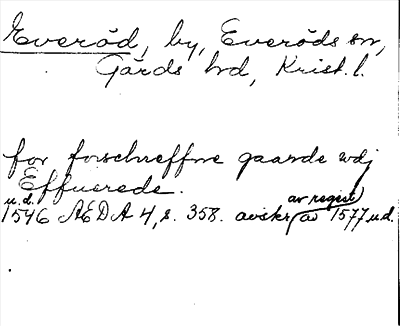 Everöd, by, Everöds sn,
Gärds hd, Krist. l.
for forschreffne gaarde wdj
Effuerede.
u.d. av regest
1546 AEDA 4, s. 358. avskr. av 1577 u.d.